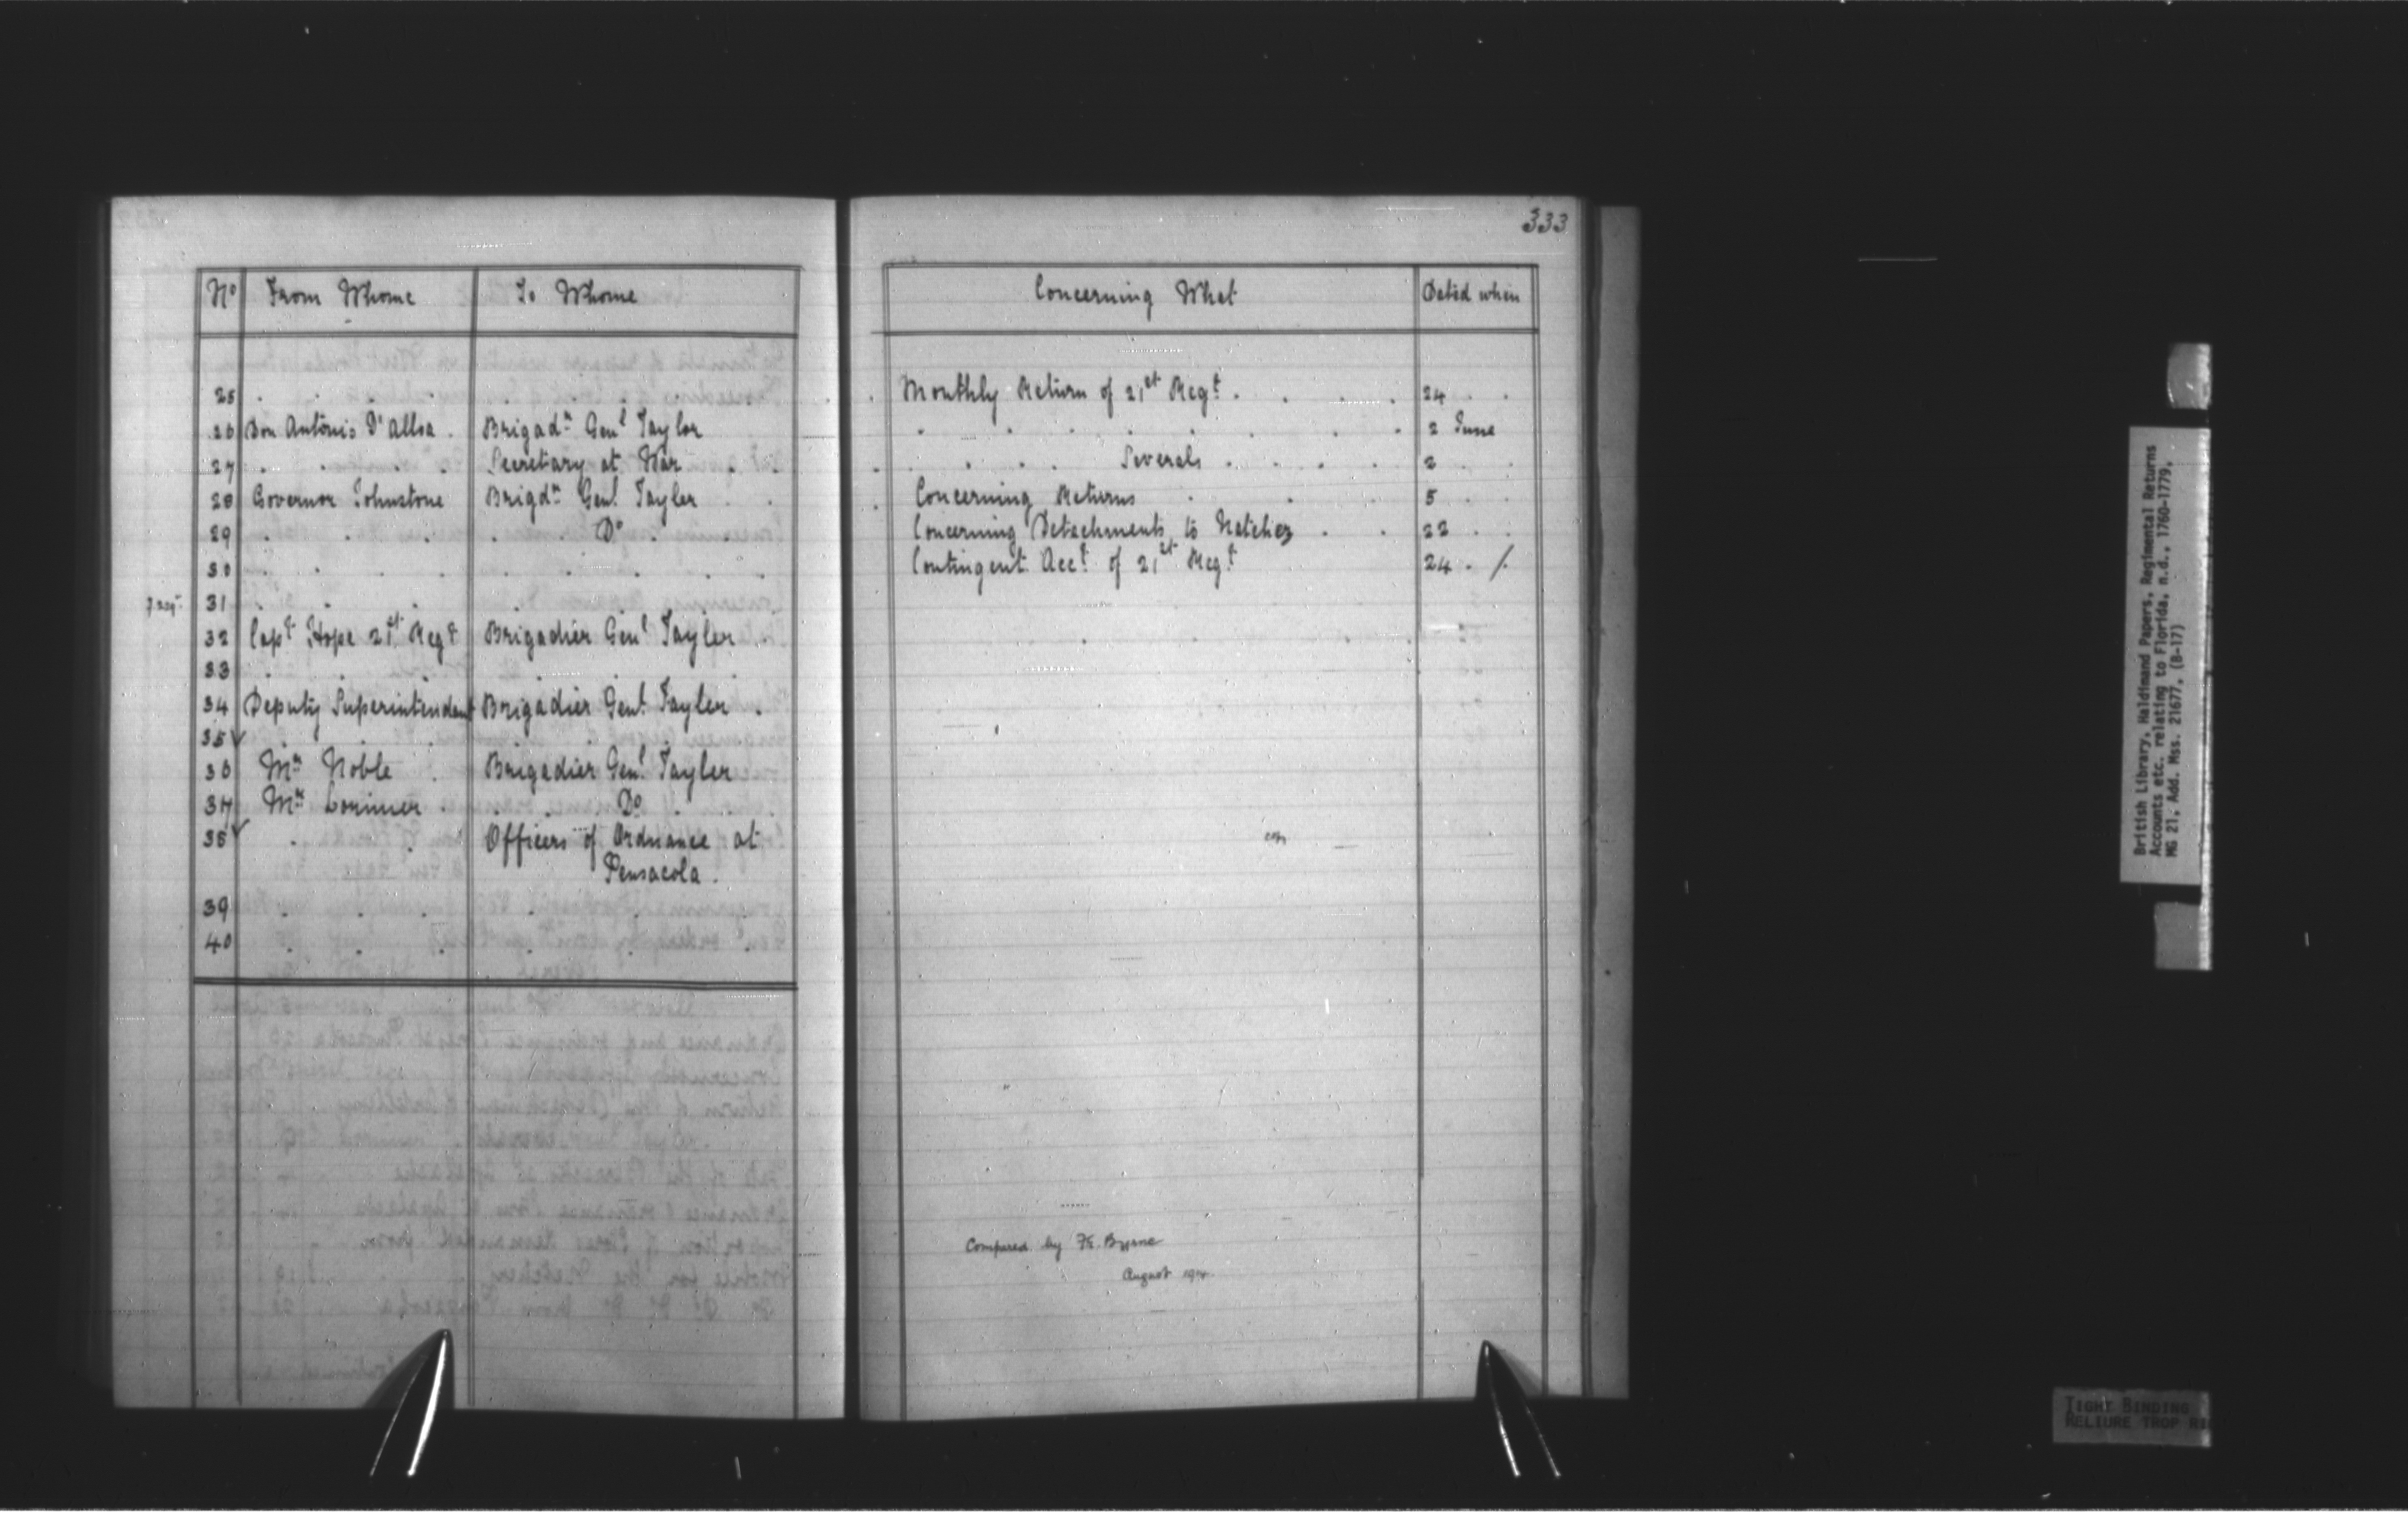 333
No From Whome To Whome Concerning What Dated when
25 . . . . Monthly Return of 21st Regt . . . 24 . .
26 Don Antonio D'Alloa . Brigadr Genl Taylor . . . . 2 June
27 . . . . Secretary at War . . . . Severals . . . . 2 . .
28 Governor Johnstone Brigdr Genl Tayler . . Concerning Returns . . . 5 . .
29 . . . . Do . . Concerning Detachments to Natchez . . 22 . .
30 . . . . . . . Contingent Acct of 21st Regt 24 . /.
31 . . . . . . .
32 Capt Hope 21st Regt Brigadier Genl Tayler .
33 . . . . . . .
34 Deputy Superintendent Brigadier Genl Tayler .
35 . . . . . . .
36 Mr Noble . Brigadier Genl Tayler
37 Mr Lorimer . . Do . .
38 . . Officers of Ordnance at
Pensacola .
39 . . . . . .
40 . . . . . .
Compared by
Byrne
August
British Library, Haldimand Papers, Regimental Returns
Accounts etc. relating to Florida, n.d., 1760-1779,
MG 21, Add. Mss. 21677, (B-17)
TIGHT BINDING
RELIURE TROP